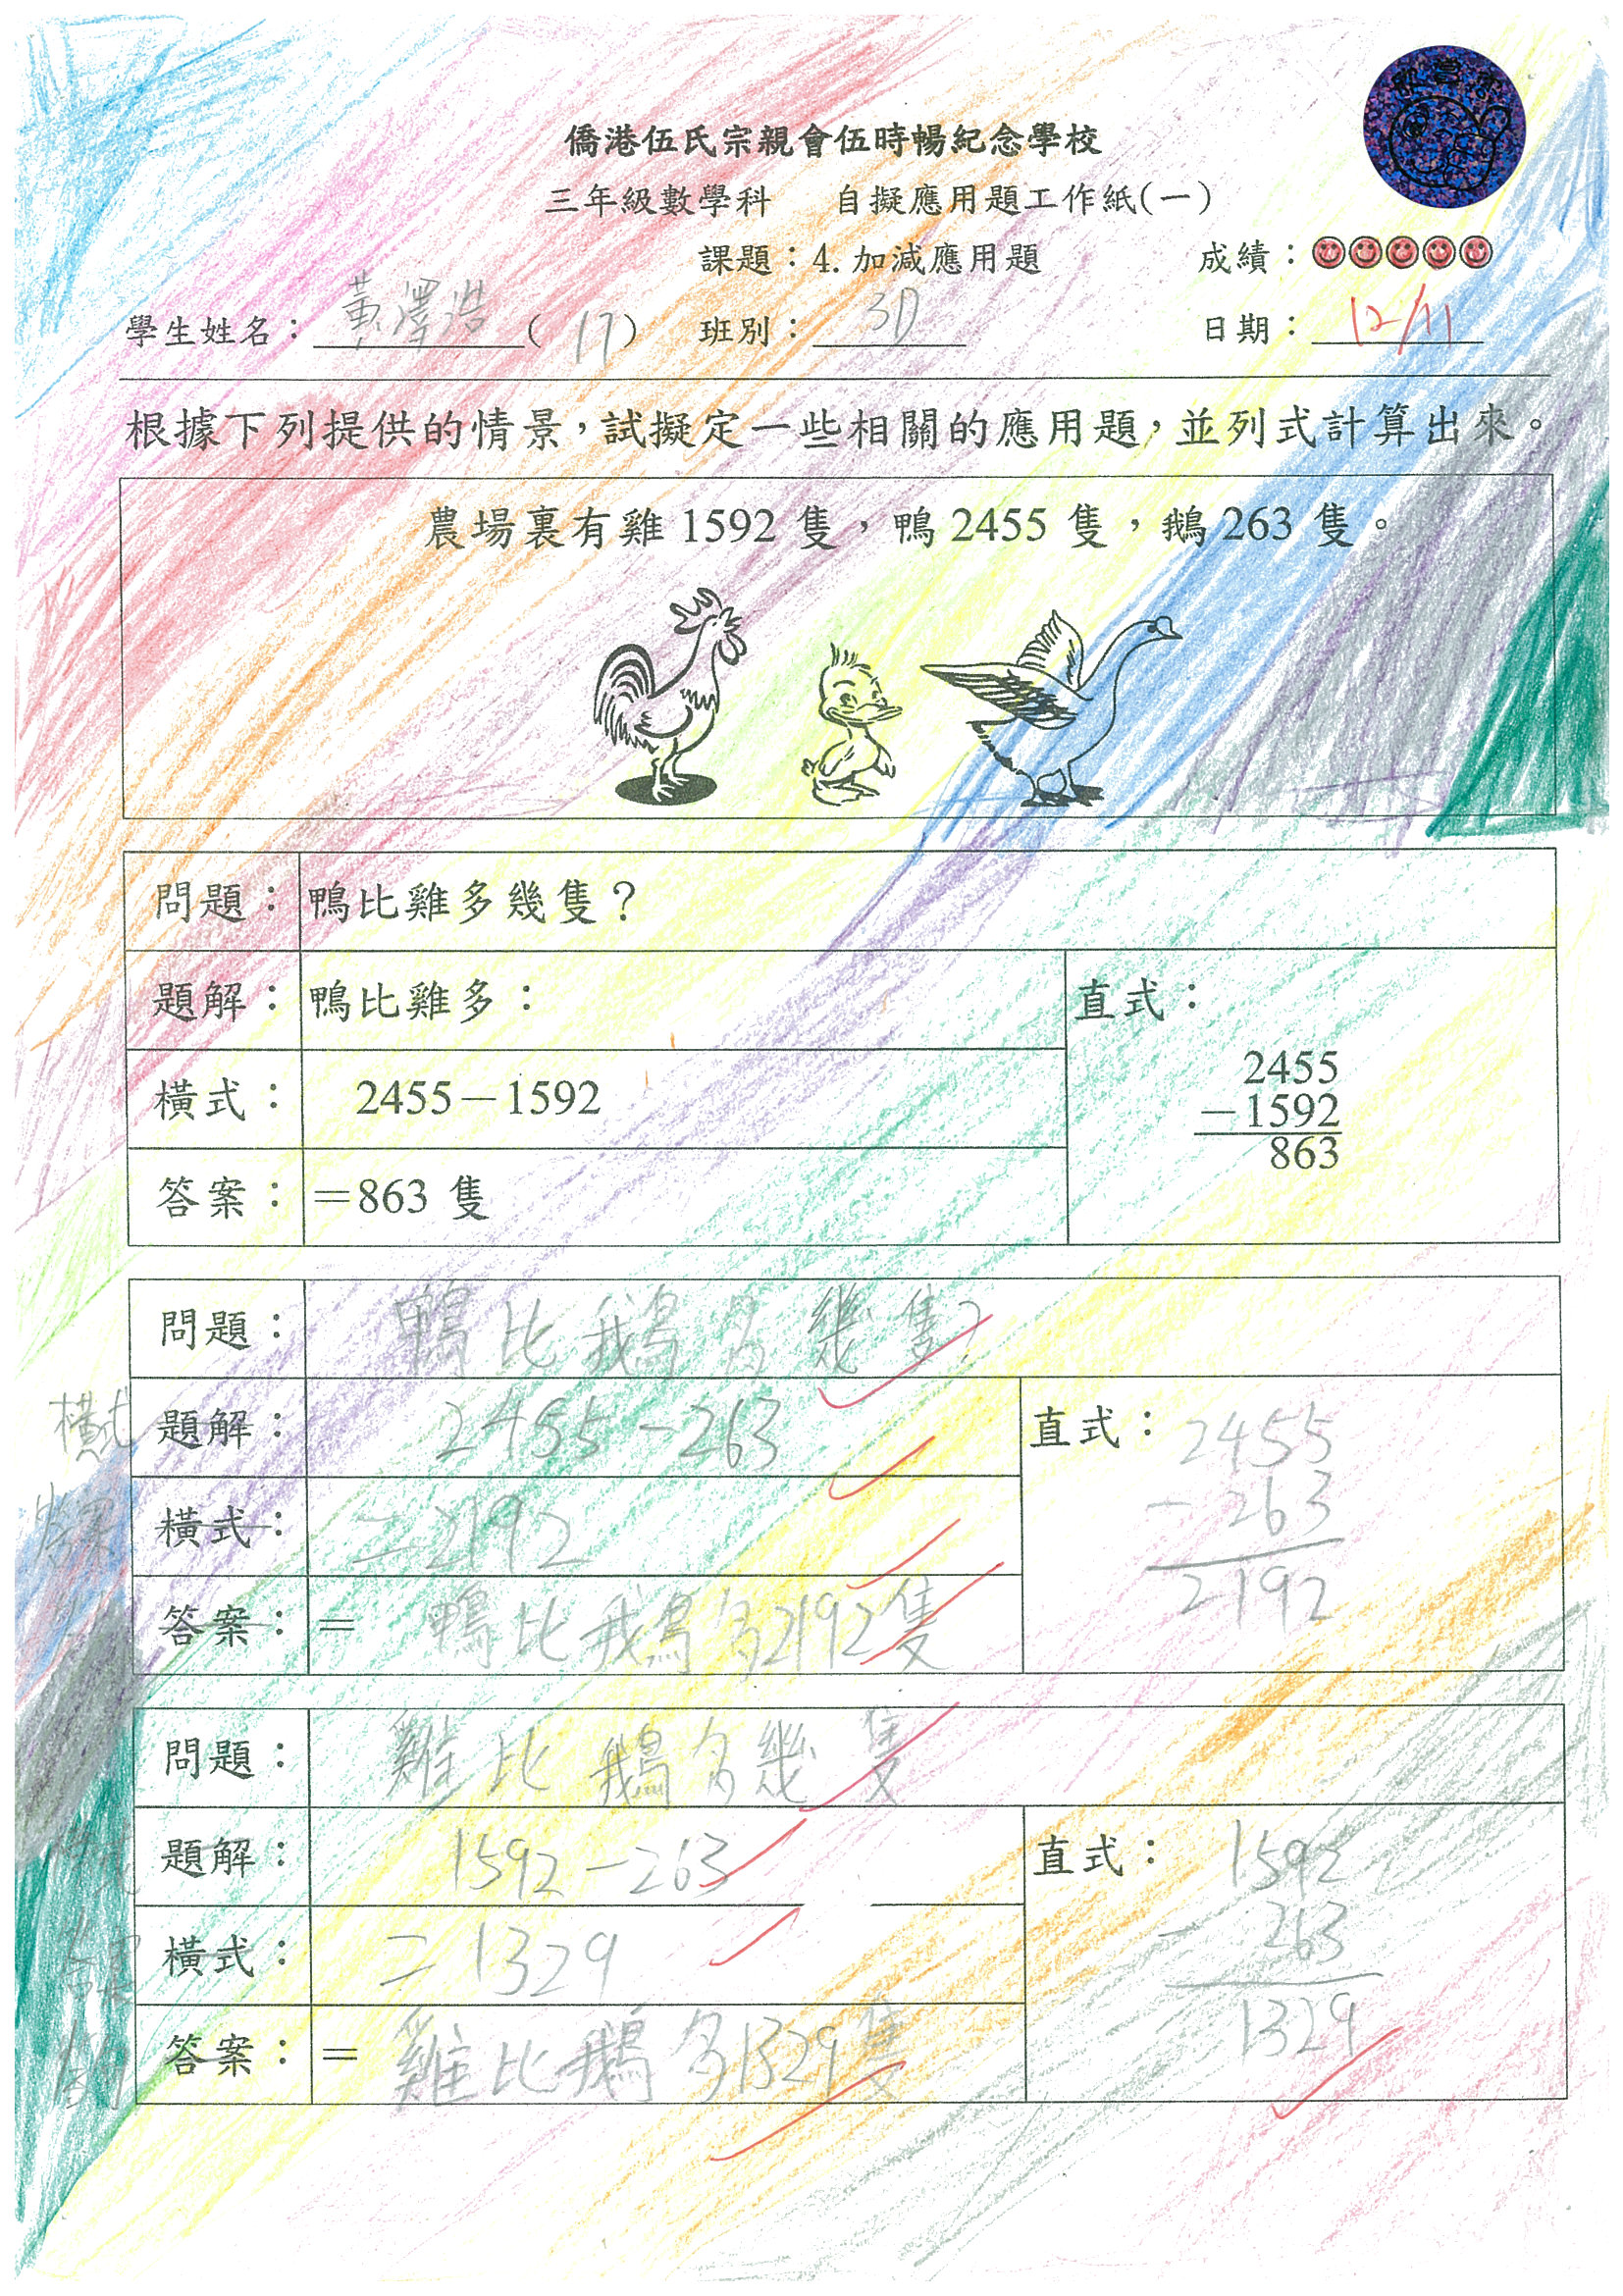 僑港伍氏宗親會伍時暢紀念學校
三年級數學科 自擬應用題工作紙(一)
課題：4.加減應用題 成績：
學生姓名：黃澤浩(17) 班別：3D 日期：12/11
根據下列提供的情景，試擬定一些相關的應用題，並列式計算出來。
農場裏有雞1592隻，鴨2455隻，鵝263隻。
問題： 鴨比雞多幾隻？
題解： 鴨比雞多： 直式：
橫式： 2455－1592
答案： ＝863 隻
2455
－1592
863
問題： 鴨比鵝多幾隻？
橫式 題解： 2455－263 直式：
答案 橫式： ＝2192
答案： ＝ 鴨比鵝多2192隻
2455
－263
2192
問題： 雞比鵝多幾隻
題解： 1592－263 直式：
答案 橫式： ＝1329
答案： ＝ 雞比鵝多1329隻
1592
－263
1329